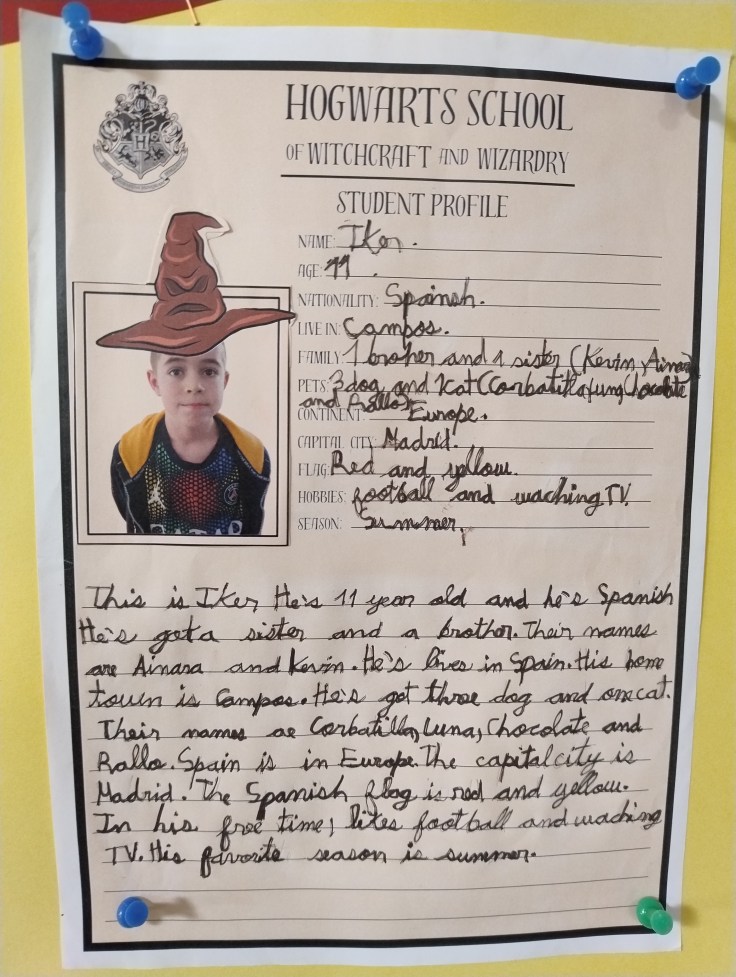 HOGWARTS SCHOOL
OF WITCHCRAFT AND WIZARDRY
STUDENT PROFILE
NAME: Iker.
AGE: 11.
NATIONALITY: Spainsh.
LIVE IN: Campos.
FAMILY: 1 broher and 1 sister (Kevin, Ainara)
PETS: 3 dog and 1 cat (Corbatilla, Luna, Chocolate
and Rallo).
CONTINENT: Europe.
CAPITAL CITY: Madrid.
FLAG: Red and yellow.
HOBBIES: football and waching TV.
SEASON: Summer.
This is Iker, He's 11 year old and he's Spanish
He's got a sister and a brother. Their names
are Ainara and Kevin. He's lives in Spain. His home
town is Campos. He's got three dog and one cat.
Their names ae Corbatilla, Luna, Chocolate and
Rallo. Spain is in Europe. The capital city is
Madrid. The Spanish flag is red and yellow.
In his free time, likes football and waching
TV. His favorite season is summer.